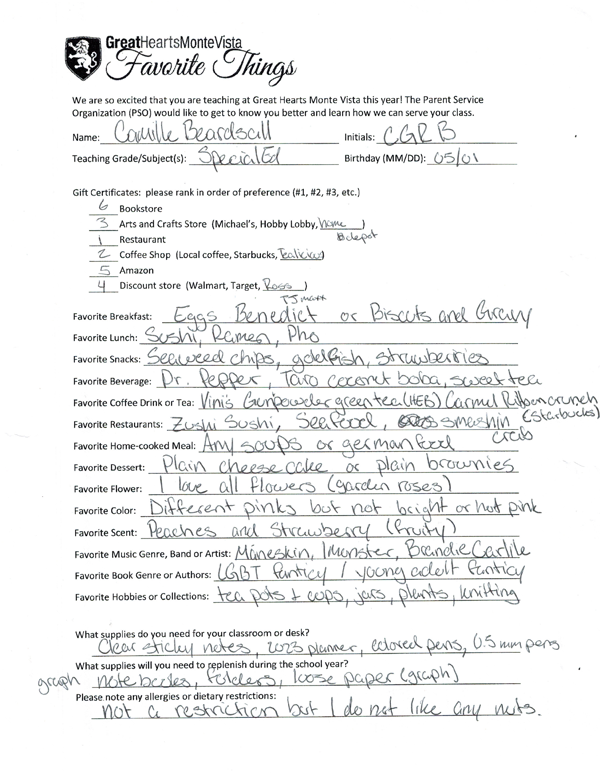 GreatHeartsMonteVista
Favorite Things
We are so excited that you are teaching at Great Hearts Monte Vista this year! The Parent Service
Organization (PSO) would like to get to know you better and learn how we can serve your class.
Name: Camille Beardsall Initials: CGRB
Teaching Grade/Subject(s): Special Ed Birthday (MM/DD): 05/01
Gift Certificates: please rank in order of preference (#1, #2, #3, etc.)
6 Bookstore
3 Arts and Crafts Store (Michael's, Hobby Lobby, home depot)
1 Restaurant
2 Coffee Shop (Local coffee, Starbucks, Tealicious)
5 Amazon
4 Discount store (Walmart, Target, Ross)
TJ maxx
Favorite Breakfast: Eggs Benedict or Biscuts and Gravy
Favorite Lunch: Sushi, Ramen, Pho
Favorite Snacks: Seaweed chips, goldfish, strawberries
Favorite Beverage: Dr. Pepper, Taro coconut boba, sweet tea
Favorite Coffee Drink or Tea: Vini's Gunpowder green tea (HEB) Carmel Ribbon crunch (Starbucks)
Favorite Restaurants: Zushi Sushi, Seafood, smashin crab
Favorite Home-cooked Meal: Any soups or german food
Favorite Dessert: Plain cheese cake or plain brownies
Favorite Flower: I love all flowers (garden roses)
Favorite Color: Different pinks but not bright or hot pink
Favorite Scent: Peaches and Strawberry (fruity)
Favorite Music Genre, Band or Artist: Måneskin, 1monster, Brandie Carlile
Favorite Book Genre or Authors: LGBT fanticy / young adult fanticy
Favorite Hobbies or Collections: tea pots + cups, jars, plants, knitting
What supplies do you need for your classroom or desk?
Clear sticky notes, 2023 planner, colored pens, 0.5 mm pens
What supplies will you need to replenish during the school year?
graph note books, folders, loose paper (graph)
Please note any allergies or dietary restrictions:
not a restriction but I do not like any nuts.